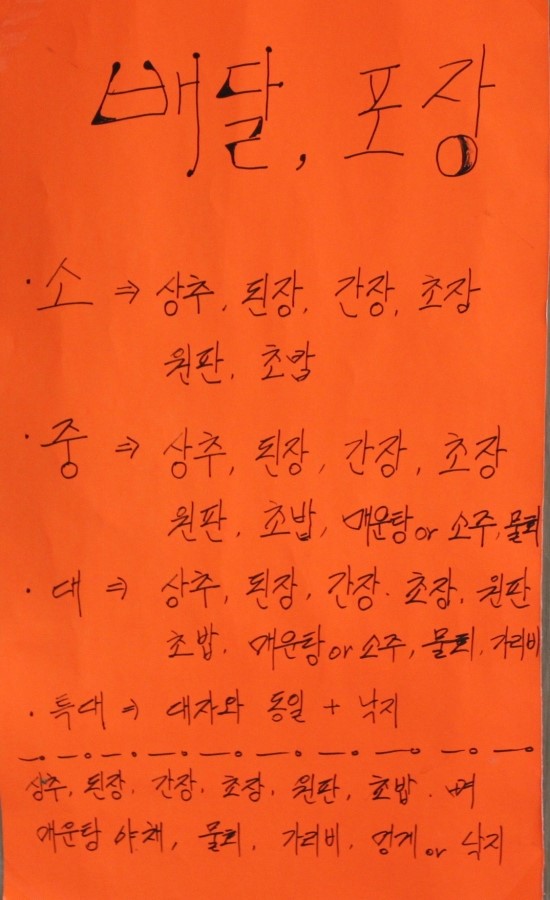 배달, 포장
· 소 ⇒ 상추, 된장, 간장, 초장
원판, 초밥
· 중 ⇒ 상추, 된장, 간장, 초장
원판, 초밥, 매운탕 or 소주, 물회
· 대 ⇒ 상추, 된장, 간장. 초장, 원판
초밥, 매운탕 or 소주, 물회, 가리비
· 특대 ⇒ 대자와 동일 + 낙지
상추, 된장. 간장. 초장. 원판, 초밥. 뼈
매운탕 야채, 물회, 가리비, 멍게 or 낙지